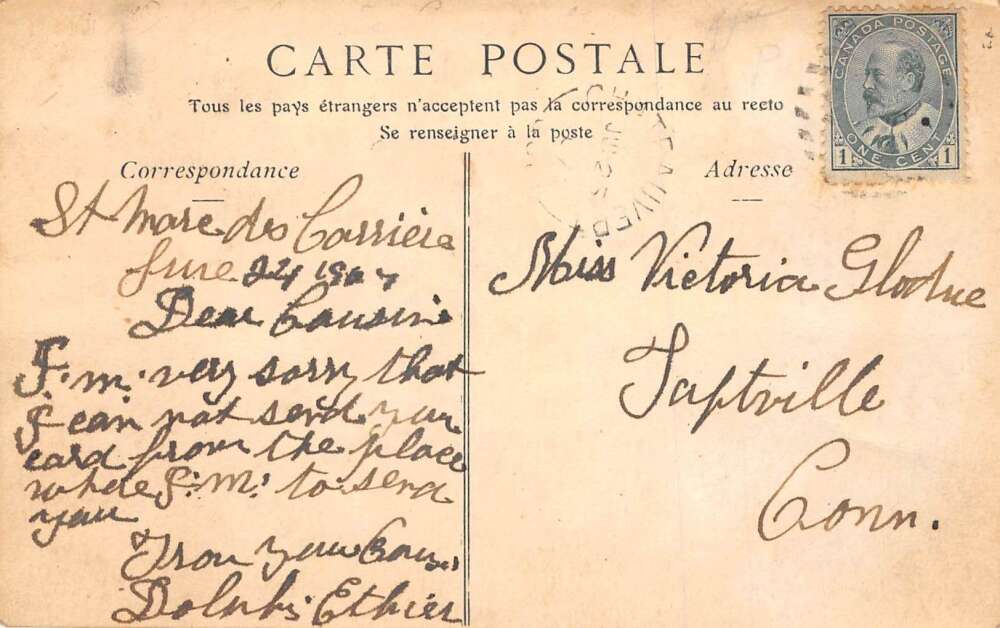 CARTE POSTALE
Tous les pays étrangers n'acceptent pas la correspondance au recto
Se renseigner à la poste
Correspondance
St Marc des Carrière
June 24 1907
Dear Cousin
I.m. very sorry that
I can not send you
card from the place
where I.m. to send
you
From your Cous.
Ethier
Adresse
Miss Victoria
Taftville
Conn.
CANADA POSTAGE
1 ONE CENT 1